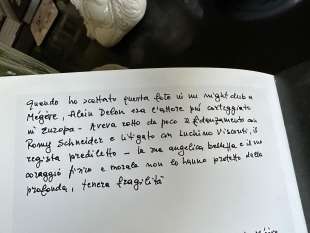 Quando ho scattato questa foto in un night club a
Megève, Alain Delon era l'attore più corteggiato
in Europa - Aveva rotto da poco il fidanzamento con
Romy Schneider e litigato con Luchino Visconti, il
regista prediletto - La sua angelica bellezza e il suo
coraggio fisico e morale non lo hanno protetto dalla
profonda, tenera fragilità